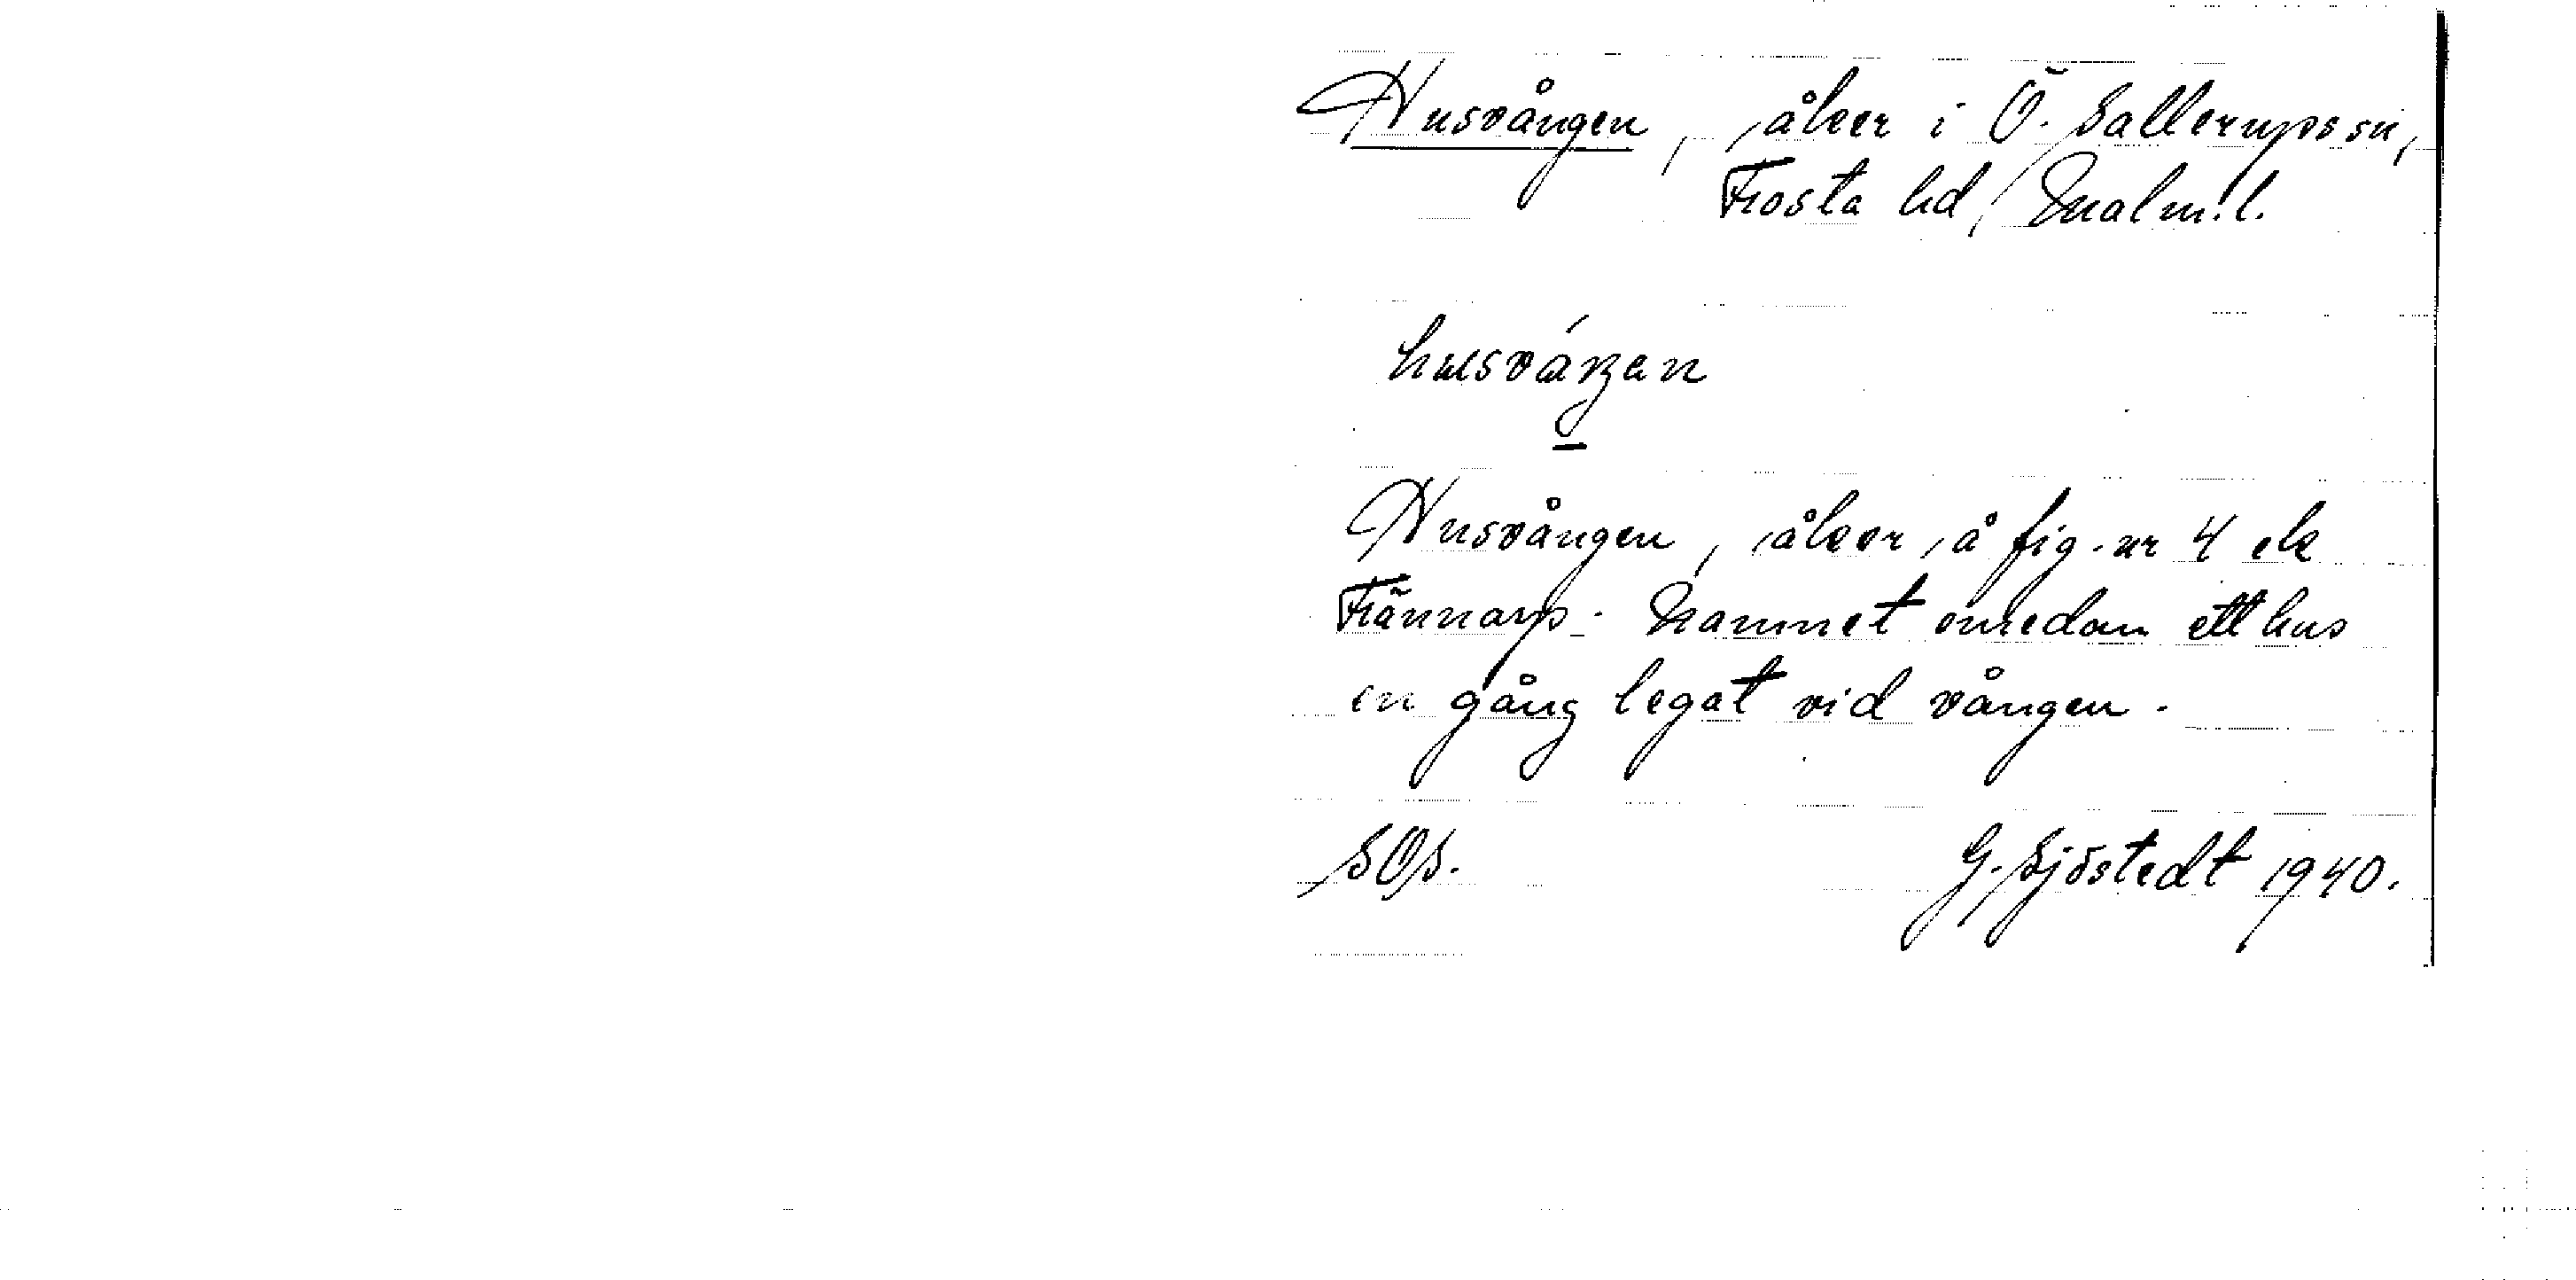 Husvången, åker i Ö. Sallerups sn,
Frosta hd, Malm. l.
husváŋen
Husvången, åker å fig. nr 4 ek
Frännarp. Namnet emedan ett hus
en gång legat vid vången.
SOS. G. Sjöstedt 1940.